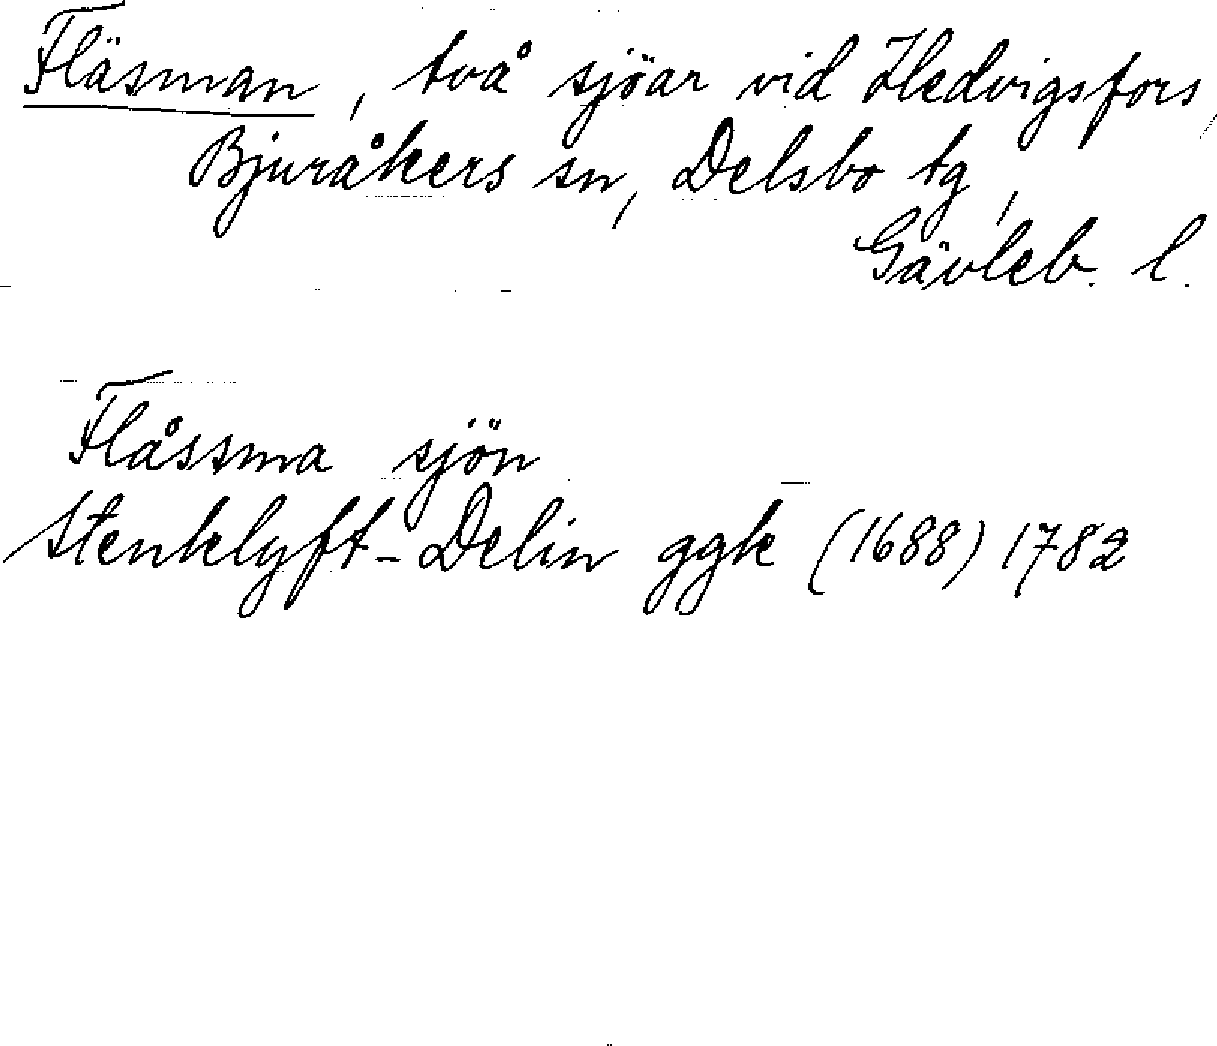 Fläsman, två sjöar vid Hedvigsfors,
Bjuråkers sn, Delsbo tg,
Gävleb. l.
Flåssma sjön
Stenklyft-Delin ggk (1688) 1782